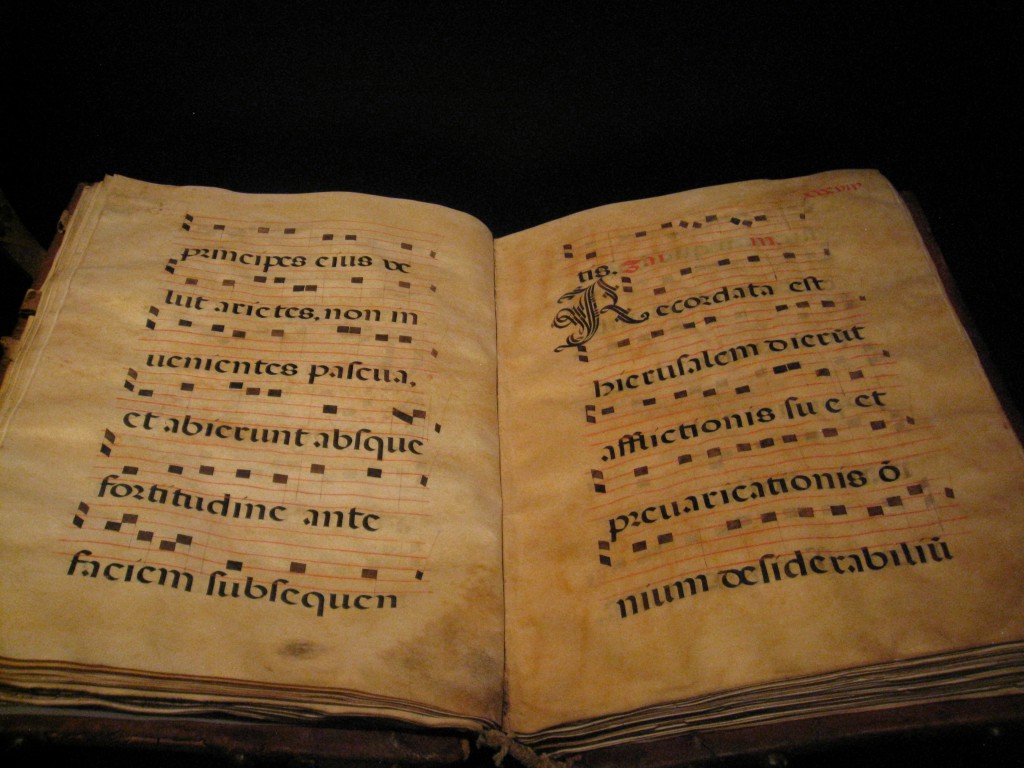 principes eius ve
lut arietes, non in
uenientes pascua,
et abierunt absque
fortitudine ante
faciem subsequen
xxxviii
tis. Zai m.
Recordata est
hierusalem dierūt
afflictionis su e et
preuaricationis ō
nium desiderabiliū